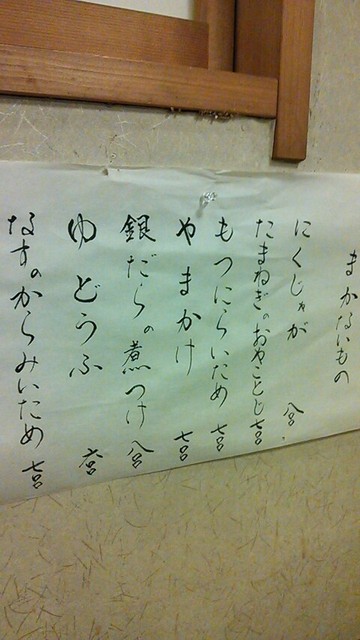 まかないもの
にくじゃが 八〇〇
たまねぎのおやことじ 七〇〇
もつにらいため 七〇〇
やまかけ 七〇〇
銀だらの煮つけ 八〇〇
ゆどうふ 六〇〇
なすのからみいため 七〇〇